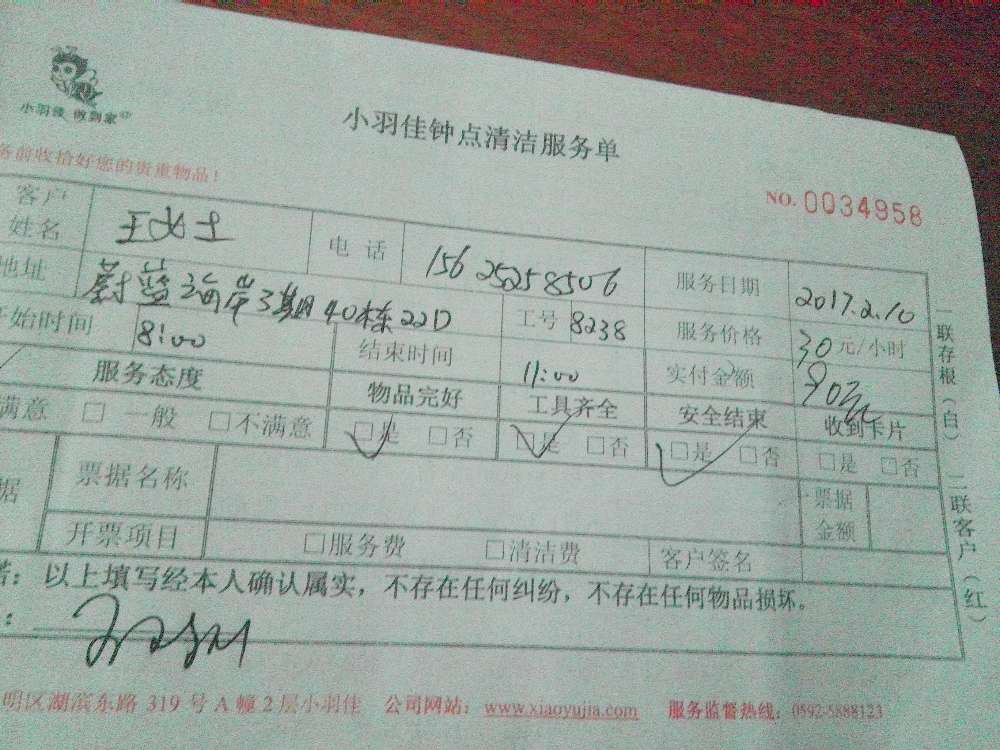 小羽佳 做到家
小羽佳钟点清洁服务单
务前收拾好您的贵重物品!
NO. 0034958
客户姓名 王女士 电话 15625258506 服务日期 2017.2.10
地址 蔚蓝海岸3期40栋22D 工号 8238 服务价格 30元/小时
开始时间 8:00 结束时间 11:00 实付金额 90元
服务态度 物品完好 工具齐全 安全结束 收到卡片
满意 □ 一般 □不满意 □是 □否 □是 □否 □是 □否 □是 □否
据 票据名称 票据金额
开票项目 □服务费 □清洁费 客户签名
诺:以上填写经本人确认属实,不存在任何纠纷,不存在任何物品损坏。
:
一联存根(白) 二联客户(红)
明区湖滨东路 319 号 A 幢 2 层小羽佳 公司网站:www.xiaoyujia.com 服务监督热线:0592-5888123